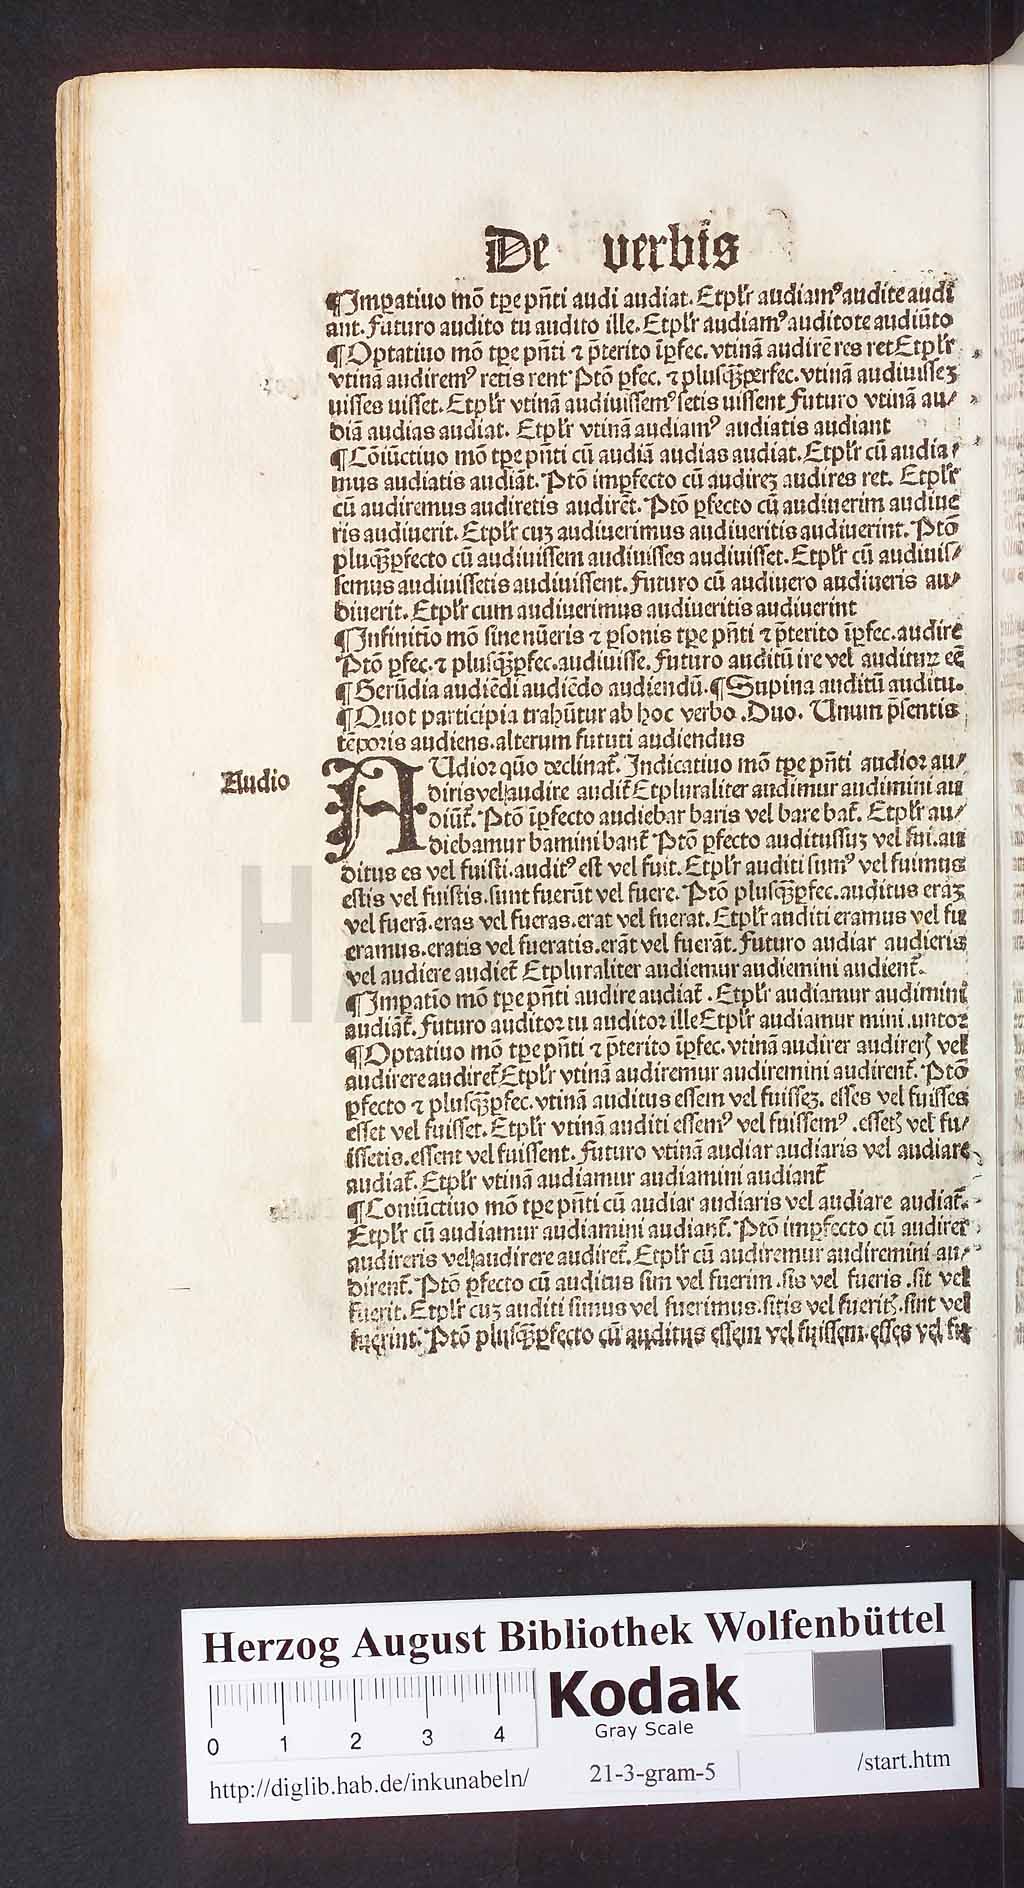 De verbis
¶Impatiuo mō tpe pñti audi audiat. Etplr̄ audiamꝰ audite audi
ant. Futuro audito tu audito ille. Etplr̄ audiamꝰ auditote audiūto
¶Optatiuo mō tpe pñti ⁊ p̄terito īpfec. vtinā audirē res ret Etplr̄
vtinā audiremꝰ retis rent Ptō ꝑfec. ⁊ plusq̄ꝫperfec. vtinā audiuisseꝫ
uisses uisset. Etplr̄ vtinā audiuissemꝰ setis uissent Futuro vtinā au⸗
diā audias audiat. Etplr̄ vtinā audiamꝰ audiatis audiant
¶Cōiūctiuo mō tpe pñti cū audiā audias audiat. Etplr̄ cū audia⸗
mus audiatis audiāt. Ptō imꝑfecto cū audireꝫ audires ret. Etplr̄
cū audiremus audiretis audirēt. Ptō ꝑfecto cū audiuerim audiue
ris audiuerit. Etplr̄ cuꝫ audiuerimus audiueritis audiuerint. Ptō
pluq̄ꝫꝑfecto cū audiuissem audiuisses audiuisset. Etplr̄ cū audiuis⸗
semus audiuissetis audiuissent. Futuro cū audiuero audiueris au⸗
diuerit. Etplr̄ cum audiuerimus audiueritis audiuerint
¶Infinitio mō sine nūeris ⁊ ꝑsonis tpe pñti ⁊ p̄terito īpfec. audire
Ptō ꝑfec. ⁊ plusq̄ꝫꝑfec. audiuisse. Futuro auditū ire vel auditum eē
¶Gerūdia audiēdi audiēdo audiendū. ¶Supina auditū auditu.
¶Quot participia trahūtur ab hoc verbo. Duo. Unum p̄sentis
tēporis audiens. alterum fututi audiendus
Audio
AUdior quō declinat᷑. Indicatiuo mō tpe pñti audior au⸗
diris vel audire audit᷑ Etpluraliter audimur audimini au
diūt᷑. Ptō īpfecto audiebar baris vel bare bat᷑. Etplr̄ au⸗
diebamur bamini bant᷑ Ptō ꝑfecto auditussuꝫ vel fui. au
ditus es vel fuisti. auditꝰ est vel fuit. Etplr̄ auditi sumꝰ vel fuimus
estis vel fuistis. sunt fuerūt vel fuere. Ptō plusq̄ꝫꝑfec. auditus eraꝫ
vel fuerā. eras vel fueras. erat vel fuerat. Etplr̄ auditi eramus vel fu
eramus. eratis vel fueratis. erāt vel fuerāt. Futuro audiar audieris
vel audiere audiet᷑ Etpluraliter audiemur audiemini audient᷑.
¶Impatio mō tpe pñti audire audiat᷑. Etplr̄ audiamur audimini
audiāt᷑. Futuro auditor tu auditor ille Etplr̄ audiamur mini. untor
¶Optatiuo mō tpe pñti ⁊ p̄terito īpfec. vtinā audirer audirerꝭ vel
audirere audiret᷑ Etplr̄ vtinā audiremur audiremini audirent᷑. Ptō
ꝑfecto ⁊ plusq̄ꝫꝑfec. vtinā auditus essem vel fuisseꝫ. esses vel fuisses
esset vel fuisset. Etplr̄ vtinā auditi essemꝰ vel fuissemꝰ. essetꝭ vel fu⸗
issetis. essent vel fuissent. Futuro vtinā audiar audiaris vel audiare
audiat᷑. Etplr̄ vtinā audiamur audiamini audiant᷑
¶Coniūctiuo mō tpe pñti cū audiar audiaris vel audiare audiat᷑.
Etplr̄ cū audiamur audiamini audiant᷑. Ptō imꝑfecto cū audirer
audireris vel audirere audiret᷑. Etplr̄ cū audiremur audiremini au⸗
dirent᷑. Ptō ꝑfecto cū auditus sim vel fuerim. sis vel fueris. sit vel
fuerit. Etplr̄ cuꝫ auditi simus vel fuerimus. sitis vel fueritꝭ. sint vel
fuerint. Ptō plusq̄ꝫꝑfecto cū auditus essem vel fuissem. esses vel fu
HAB
Herzog August Bibliothek Wolfenbüttel
Kodak
Gray Scale
0 1 2 3 4
http://diglib.hab.de/inkunabeln/ 21-3-gram-5 /start.htm